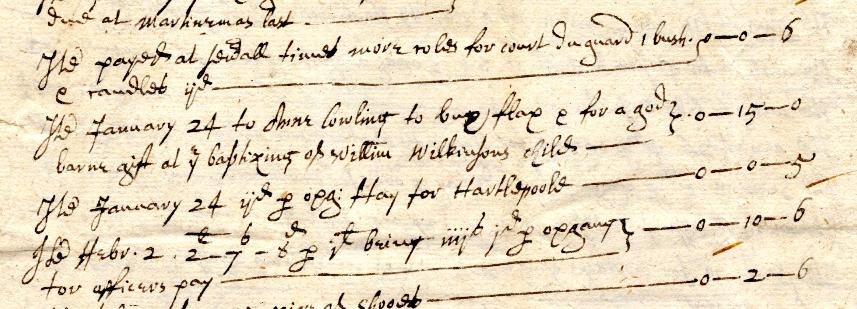 due at Martinmas last
Itẽ payed at severall times more coles for court du guard 1 bush. 0—0—6
& candles ijd
Itẽ January 24 to Anne Cowling to buy flax & for a god 0—15—0
barne gift at ye baptizing of Willim Wilkinsons childe
Itẽ January 24 ijd p oxg: Hay for Hartlepoole 0—0—5
Itẽ Febr. 2. 2—7—8 p being iiijs jd p oxgang 0—10—6
for officers pay
of shooes 0—2—6